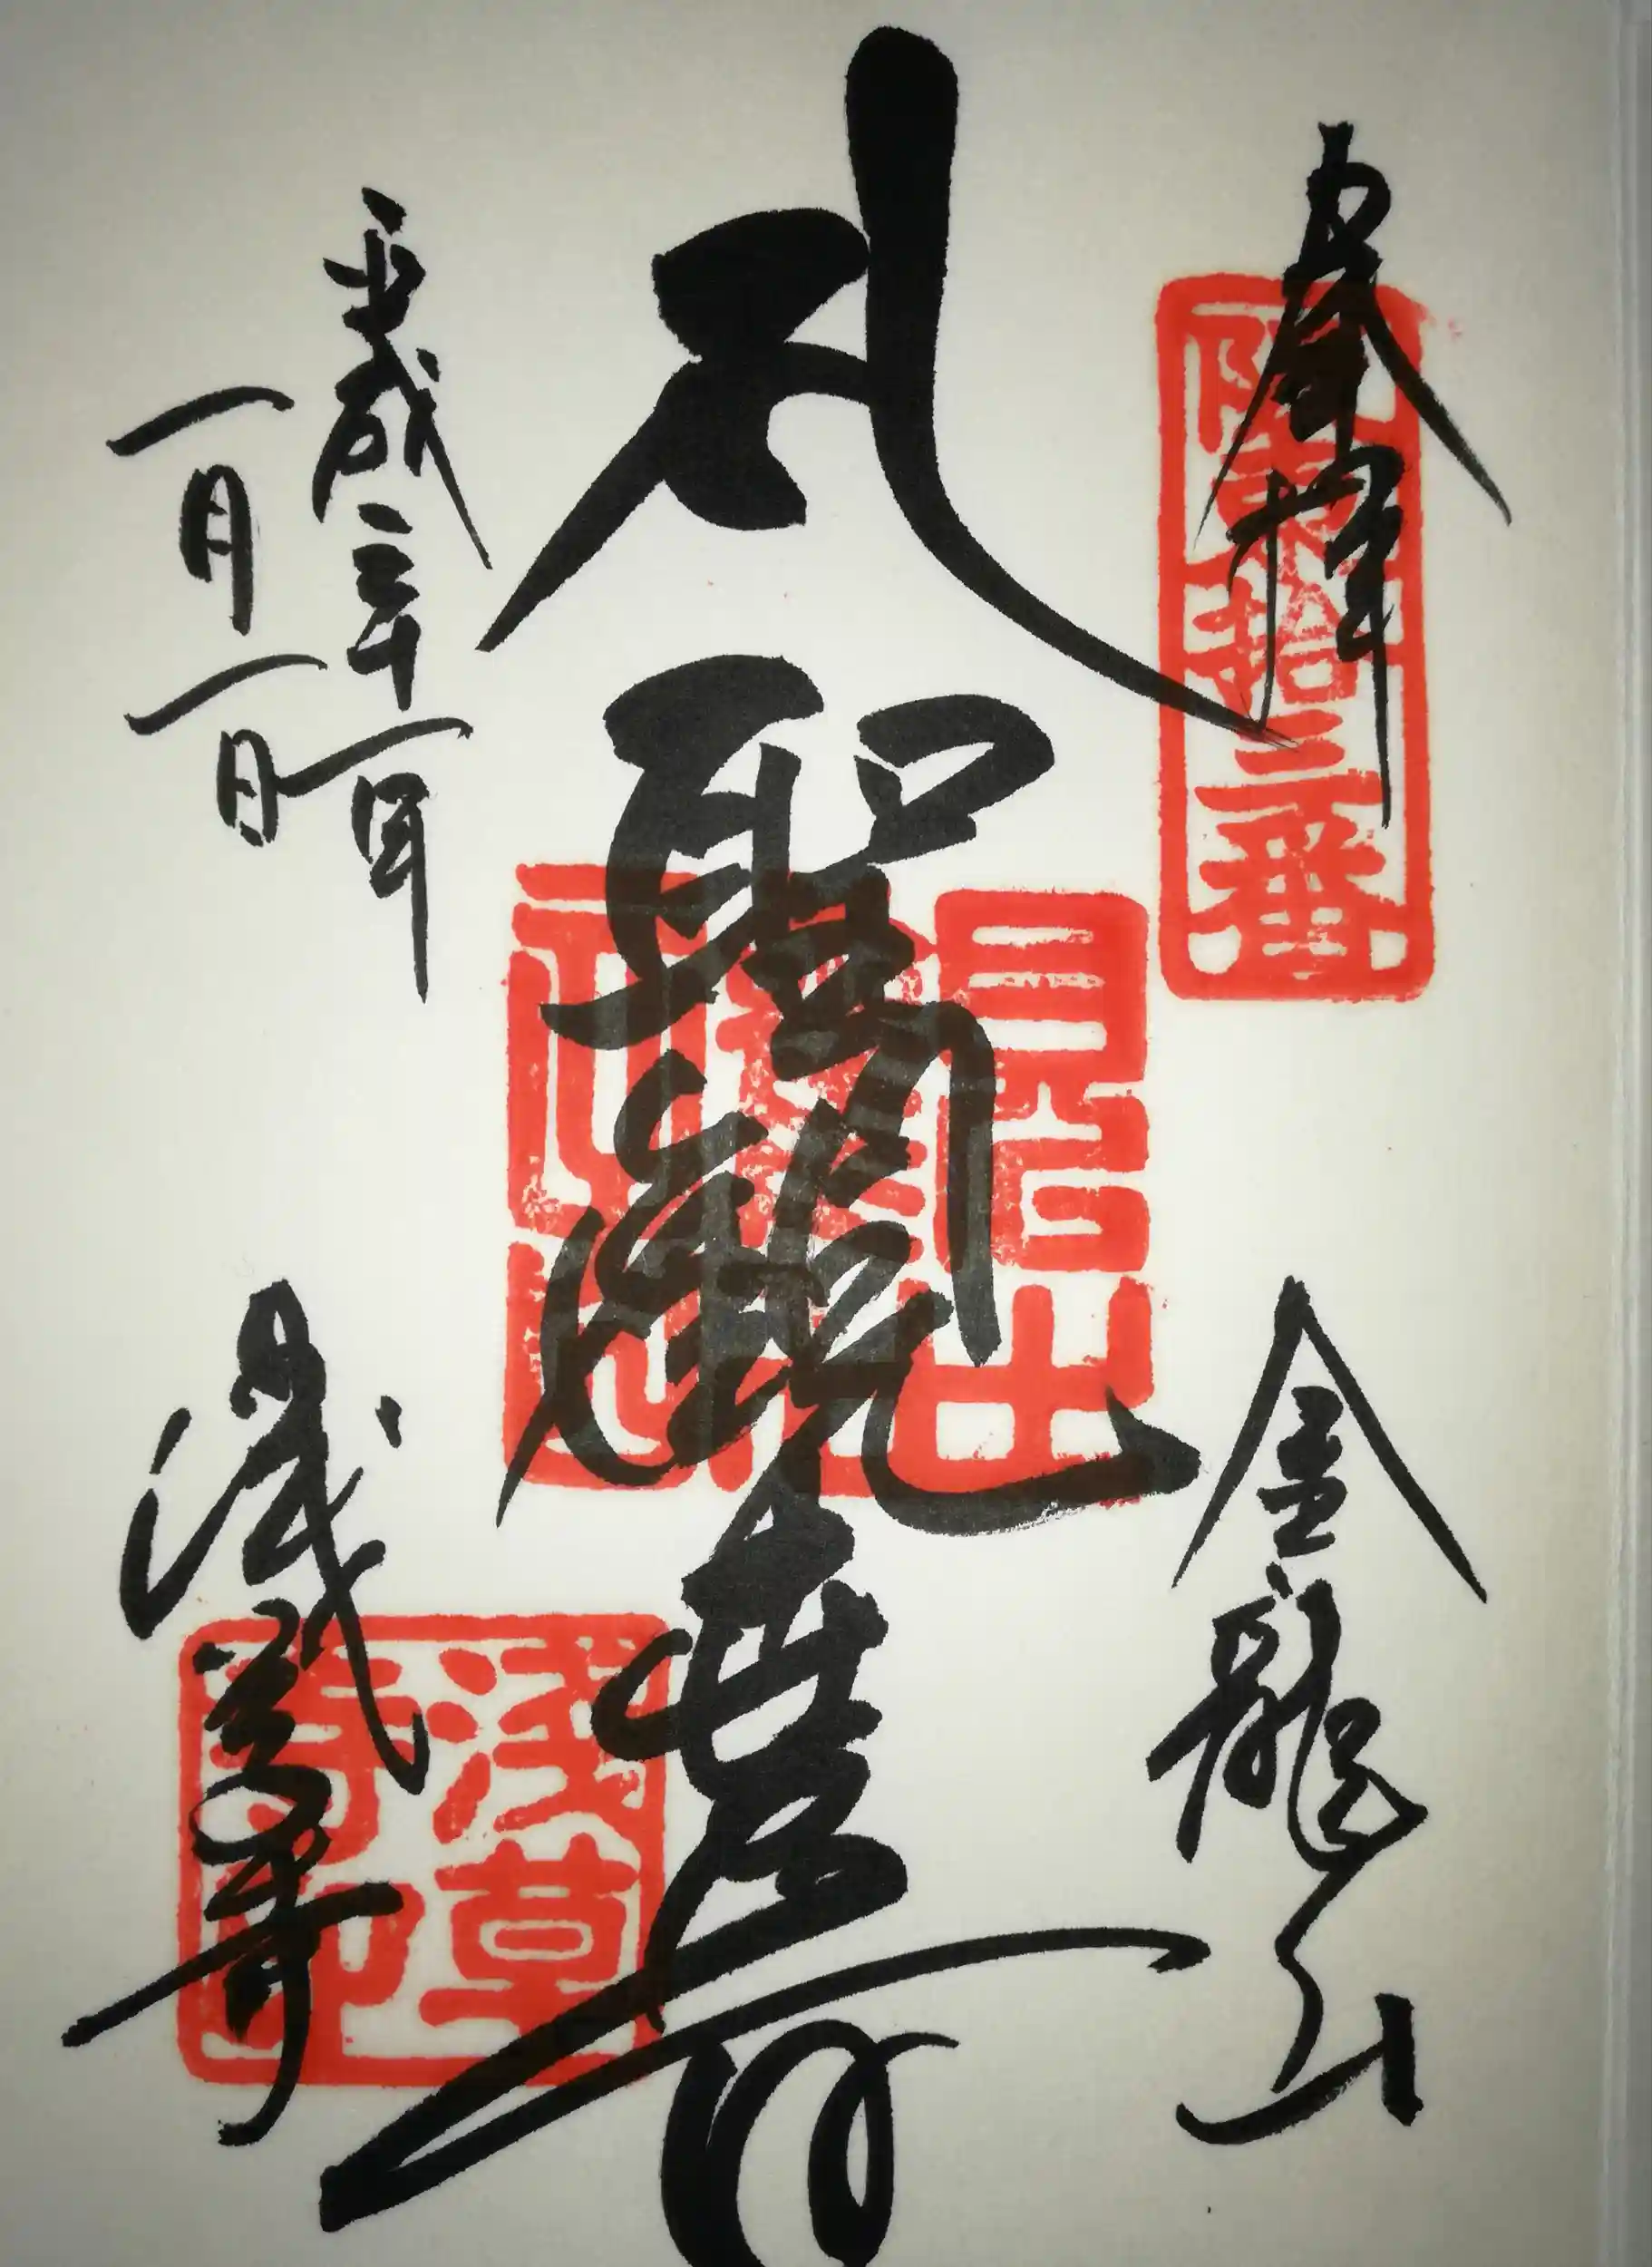 奉拝
坂東拾三番
金龍山
聖観世音
平成三十一年
一月一日
浅草寺
浅草
寺印